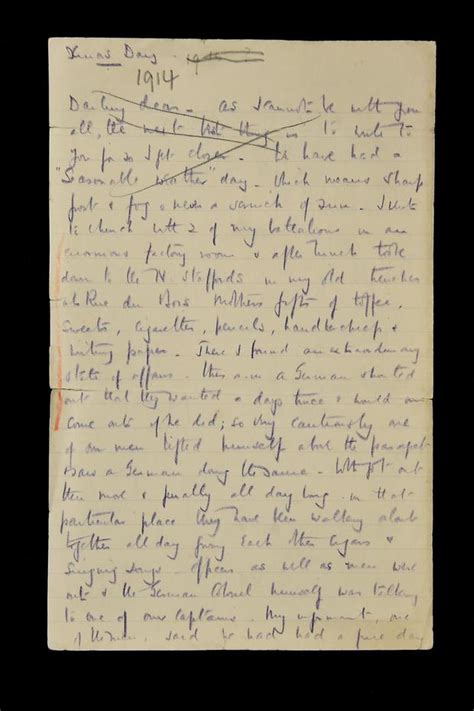 Xmas Day
1914
Darling dear - as I cannot be with you
all, the next best thing is to write to
you for so I get closer - We have had a
"Seasonable weather" day - which means sharp
frost & fog & never a scrunch of sun. I went
to church with 2 of my battalions in an
enormous factory room & after lunch took
down to the N. Staffords in my old trenches
at Rue du Bois Mothers gifts of toffee,
sweets, cigarettes, pencils, handkerchiefs &
writing paper. There I found an extraordinary
state of affairs - this a.m a German shouted
out that they wanted a days truce & would one
come out if he did; so very cautiously one
of our men lifted himself above the parapet
& saw a German doing the same. Both got out
then more & finally all day long in that
particular place they have been walking about
together all day giving each other cigars &
singing songs - officers as well as men were
out & the German Colonel himself was talking
to one of our Captains. My informant, one
of the men, said he had had a fine day